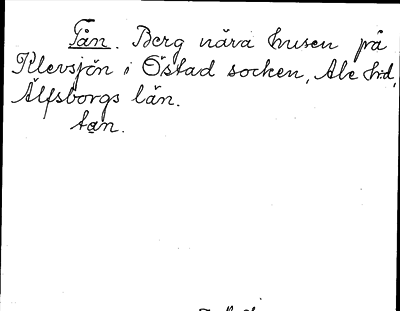 Tån. Berg nära husen på
Klevsjön i Östad socken, Ale hd,
Älfsborgs län.
tan.